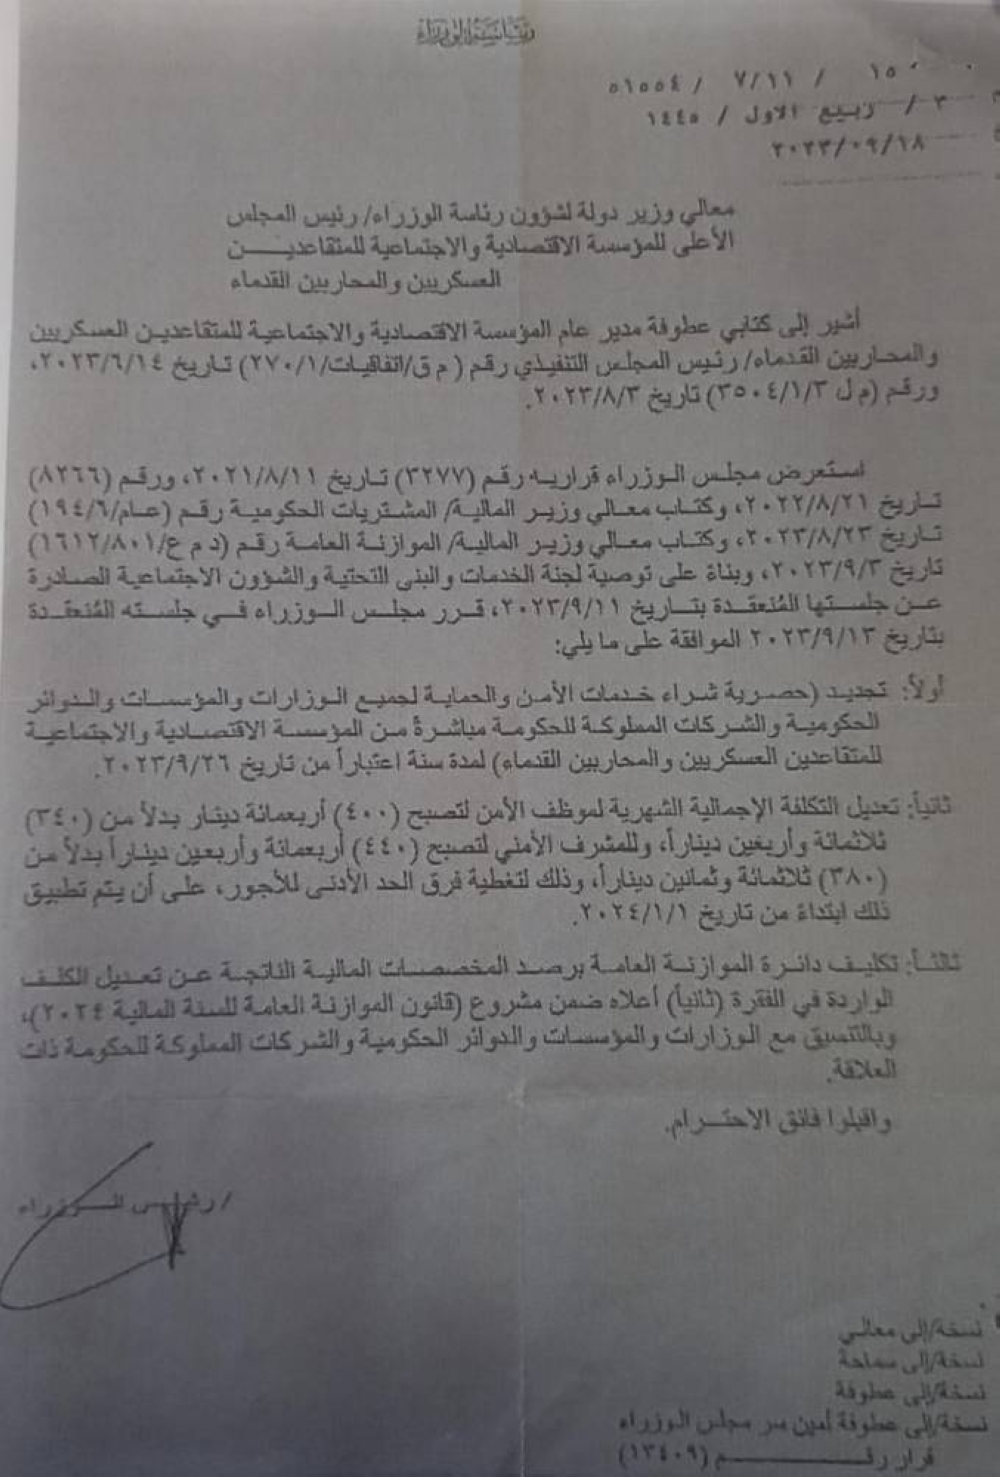 رئاسة الوزراء
١٥ / ٧/١١ / ٥١٥٥٤
٣ / ربيع الاول / ١٤٤٥
٢٠٢٣/٠٩/١٨
معالي وزير دولة لشؤون رئاسة الوزراء/ رئيس المجلس
الأعلى للمؤسسة الاقتصادية والاجتماعية للمتقاعديـــــن
العسكريين والمحاربين القدماء
أشير إلى كتابي عطوفة مدير عام المؤسسة الاقتصادية والاجتماعية للمتقاعدين العسكريين
والمحاربين القدماء/ رئيس المجلس التنفيذي رقم ( م ق/اتفاقيات/٢٧٠/١) تاريخ ٢٠٢٣/٦/١٤،
ورقم (م ل ٣٥٠٤/١/٣) تاريخ ٢٠٢٣/٨/٣.
استعرض مجلس الوزراء قراريه رقم (٣٢٧٧) تاريخ ٢٠٢١/٨/١١، ورقم (٨٢٦٦)
تاريخ ٢٠٢٢/٨/٢١، وكتاب معالي وزير المالية/ المشتريات الحكومية رقم (عام/١٩٤/٦)
تاريخ ٢٠٢٣/٨/٢٣، وكتاب معالي وزير المالية/ الموازنة العامة رقم (د م ع/١٦١٢/٨٠١)
تاريخ ٢٠٢٣/٩/٣، وبناءً على توصية لجنة الخدمات والبنى التحتية والشؤون الاجتماعية الصادرة
عن جلستها المُنعقدة بتاريخ ٢٠٢٣/٩/١١، قرر مجلس الوزراء في جلسته المُنعقدة
بتاريخ ٢٠٢٣/٩/١٣ الموافقة على ما يلي:
أولاً: تجديد (حصرية شراء خدمات الأمن والحماية لجميع الوزارات والمؤسسات والدوائر
الحكومية والشركات المملوكة للحكومة مباشرةً من المؤسسة الاقتصادية والاجتماعية
للمتقاعدين العسكريين والمحاربين القدماء) لمدة سنة اعتباراً من تاريخ ٢٠٢٣/٩/٢٦.
ثانياً: تعديل التكلفة الإجمالية الشهرية لموظف الأمن لتصبح (٤٠٠) أربعمائة دينار بدلاً من (٣٤٠)
ثلاثمائة وأربعين ديناراً، وللمشرف الأمني لتصبح (٤٤٠) أربعمائة وأربعين ديناراً بدلاً من
(٣٨٠) ثلاثمائة وثمانين ديناراً، وذلك لتغطية فرق الحد الأدنى للأجور، على أن يتم تطبيق
ذلك ابتداءً من تاريخ ٢٠٢٤/١/١.
ثالثاً: تكليف دائرة الموازنة العامة برصد المخصصات المالية الناتجة عن تعديل الكلف
الواردة في الفقرة (ثانياً) أعلاه ضمن مشروع (قانون الموازنة العامة للسنة المالية ٢٠٢٤)،
وبالتنسيق مع الوزارات والمؤسسات والدوائر الحكومية والشركات المملوكة للحكومة ذات
العلاقة.
واقبلوا فائق الاحترام.
/ رئيس الوزراء
نسخة/إلى معالي
نسخة/إلى سماحة
نسخة/إلى عطوفة
نسخة/إلى عطوفة أمين سر مجلس الوزراء
قرار رقـــــــــــــــم (١٣٤٠٩)